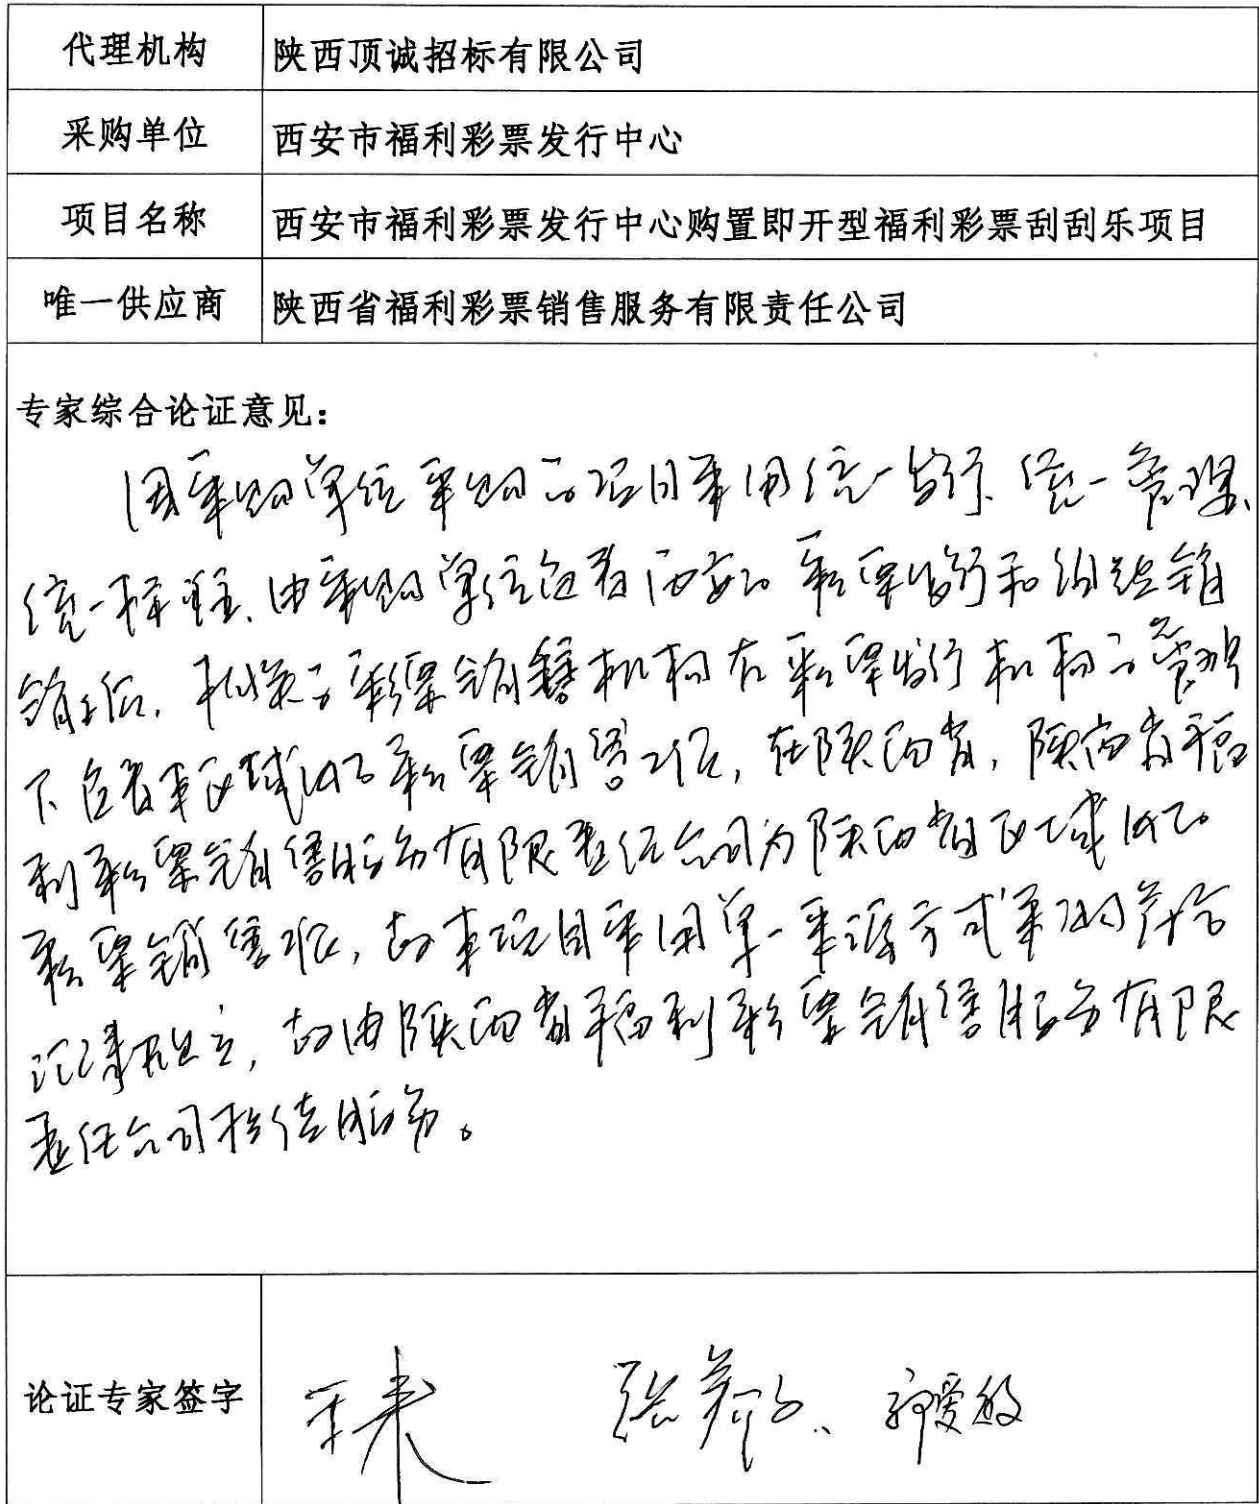 代理机构 陕西顶诚招标有限公司
采购单位 西安市福利彩票发行中心
项目名称 西安市福利彩票发行中心购置即开型福利彩票刮刮乐项目
唯一供应商 陕西省福利彩票销售服务有限责任公司
专家综合论证意见：
因采购单位采购的项目采用统一发行、统一管理、
统一标准、由采购单位负责西安的彩票发行和组织销
销工作，彩票销售机构在彩票发行机构的管理
下负责本区域内的彩票销售工作，在陕西省，陕西省福
利彩票销售服务有限责任公司为陕西省区域内的
彩票销售，故本项目采用单一来源方式采购符合
，故由陕西省福利彩票销售服务有限
责任公司提供服务。
论证专家签字